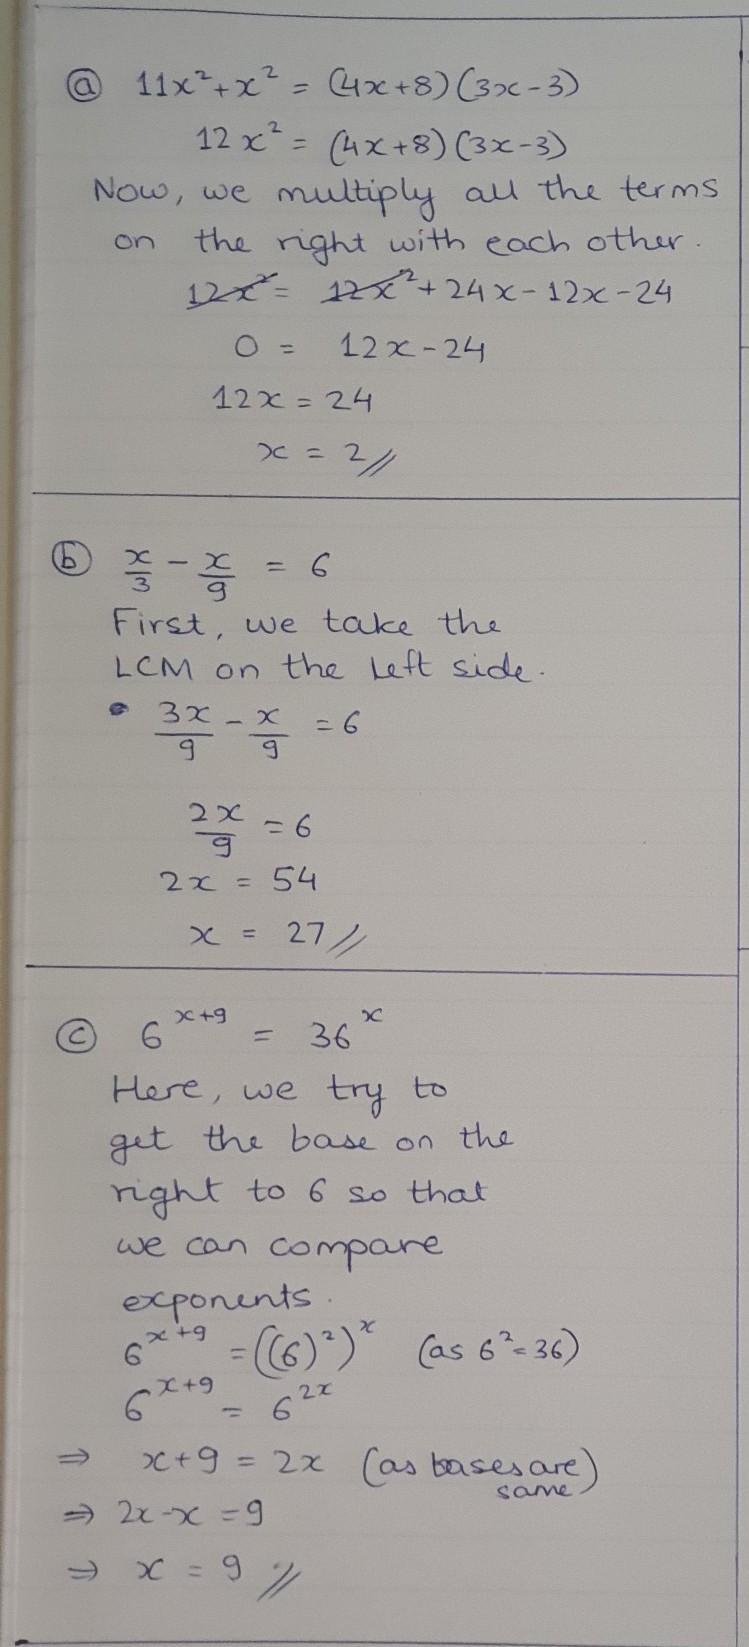 ⓐ 11x²+x² = (4x+8)(3x-3)
12x² = (4x+8)(3x-3)
Now, we multiply all the terms
on the right with each other.
12x² = 12x²+24x-12x-24
0 = 12x-24
12x = 24
x = 2//
ⓑ x/3 - x/9 = 6
First, we take the
LCM on the left side.
• 3x/9 - x/9 = 6
2x/9 = 6
2x = 54
x = 27//
ⓒ 6^(x+9) = 36^x
Here, we try to
get the base on the
right to 6 so that
we can compare
exponents.
6^(x+9) = ((6)²)^x (as 6²=36)
6^(x+9) = 6^(2x)
⇒ x+9 = 2x (as bases are
same)
⇒ 2x-x = 9
⇒ x = 9 //